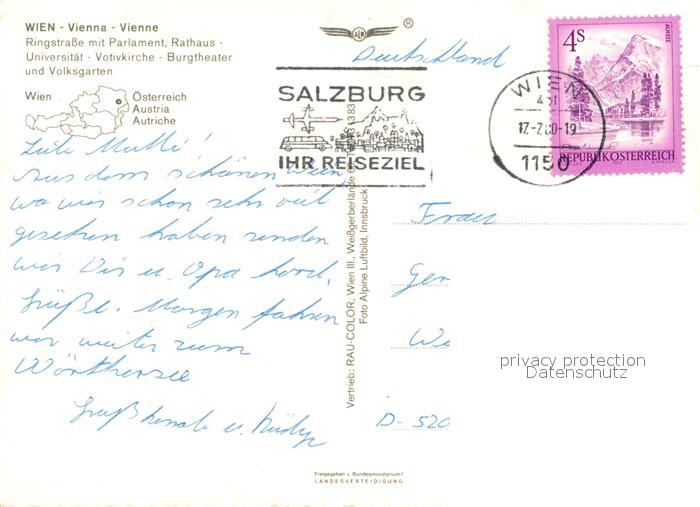 WIEN - Vienna - Vienne
Ringstraße mit Parlament, Rathaus -
Universität - Votivkirche - Burgtheater
und Volksgarten
Wien
Österreich
Austria
Autriche
ALD
®
Deutschland
SALZBURG
IHR REISEZIEL
WIEN
17.-7.80-19
1150
4S
ALMSEE
REPUBLIK ÖSTERREICH
Liebe Mutti!
Aus dem schönen Wien,
wo wir schon sehr viel
gesehen haben senden
wir Dir u. Opa herzl.
Grüße. Morgen fahren
wir weiter zum
Wörthersee
Gruß u.
Vertrieb: RAU-COLOR, Wien III., Weißgerberlände
Foto Alpine Luftbild, Innsbruck
Frau
Ger
We
D-520
privacy protection
Datenschutz
Freigegeben v. Bundesministerium f.
LANDESVERTEIDIGUNG